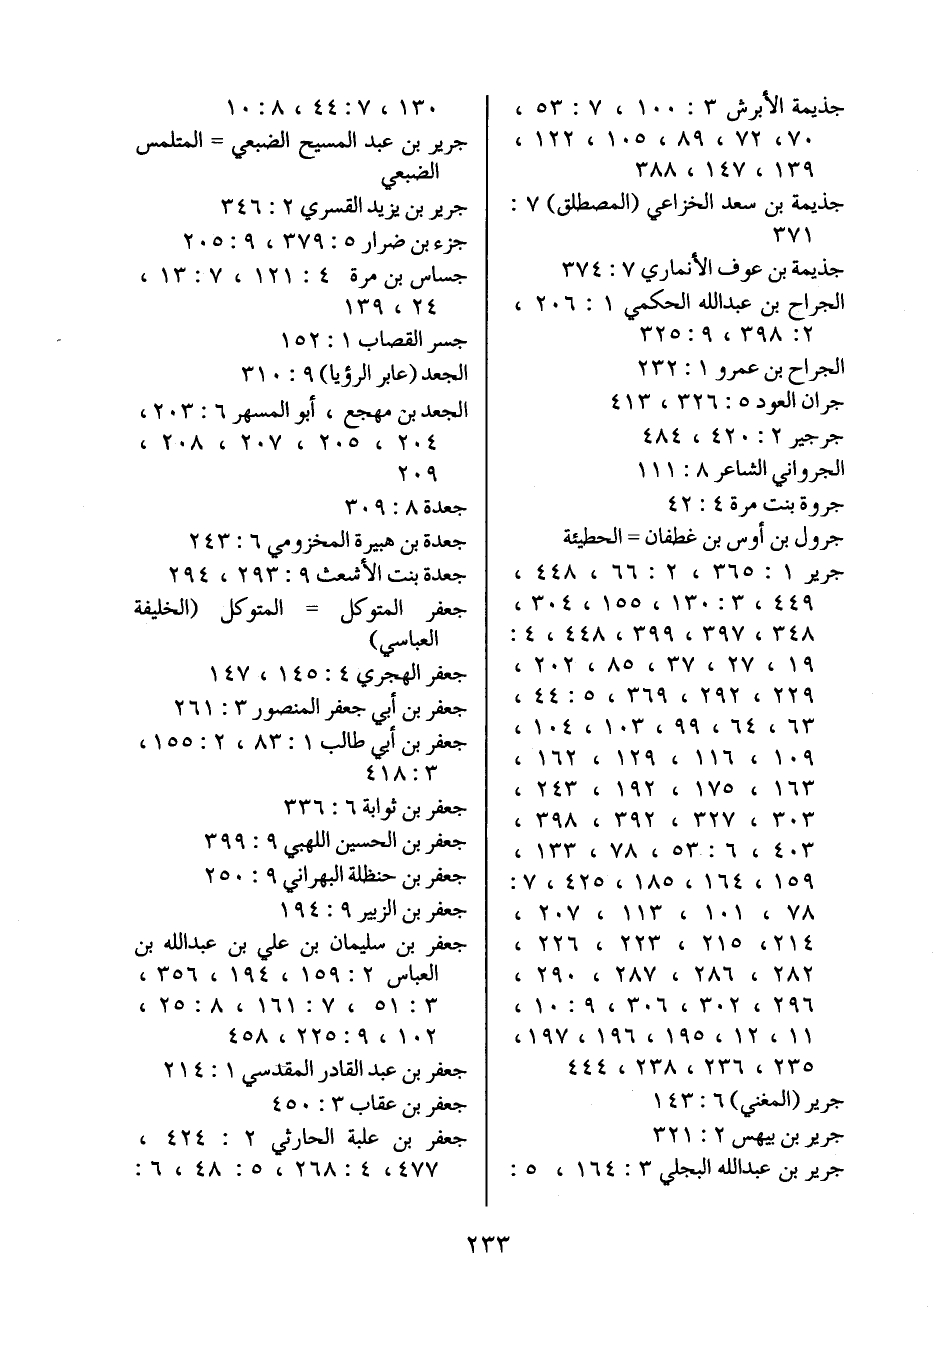 جذيمة الأبرش ٣ : ١٠٠ ، ٧ : ٥٣ ،
٧٠ ، ٧٢ ، ٨٩ ، ١٠٥ ، ١٢٢ ،
١٣٩ ، ١٤٧ ، ٣٨٨
جذيمة بن سعد الخزاعي (المصطلق) ٧ :
٣٧١
جذيمة بن عوف الأنماري ٧ : ٣٧٤
الجراح بن عبدالله الحكمي ١ : ٢٠٦ ،
٢ : ٣٩٨ ، ٩ : ٣٢٥
الجراح بن عمرو ١ : ٢٣٢
جران العود ٥ : ٣٢٦ ، ٤١٣
جرجير ٢ : ٤٢٠ ، ٤٨٤
الجرواني الشاعر ٨ : ١١١
جروة بنت مرة ٤ : ٤٢
جرول بن أوس بن غطفان = الحطيئة
جرير ١ : ٣٦٥ ، ٢ : ٦٦ ، ٤٤٨ ،
٤٤٩ ، ٣ : ١٣٠ ، ١٥٥ ، ٣٠٤ ،
٣٤٨ ، ٣٩٧ ، ٣٩٩ ، ٤٤٨ ، ٤ :
١٩ ، ٢٧ ، ٣٧ ، ٨٥ ، ٢٠٢ ،
٢٢٩ ، ٢٩٢ ، ٣٦٩ ، ٥ : ٤٤ ،
٦٣ ، ٦٤ ، ٩٩ ، ١٠٣ ، ١٠٤ ،
١٠٩ ، ١١٦ ، ١٢٩ ، ١٦٢ ،
١٦٣ ، ١٧٥ ، ١٩٢ ، ٢٤٣ ،
٣٠٣ ، ٣٢٧ ، ٣٩٢ ، ٣٩٨ ،
٤٠٣ ، ٦ : ٥٣ ، ٧٨ ، ١٣٣ ،
١٥٩ ، ١٦٤ ، ١٨٥ ، ٤٢٥ ، ٧ :
٧٨ ، ١٠١ ، ١١٣ ، ٢٠٧ ،
٢١٤ ، ٢١٥ ، ٢٢٣ ، ٢٢٦ ،
٢٨٢ ، ٢٨٦ ، ٢٨٧ ، ٢٩٠ ،
٢٩٦ ، ٣٠٢ ، ٣٠٦ ، ٩ : ١٠ ،
١١ ، ١٢ ، ١٩٥ ، ١٩٦ ، ١٩٧ ،
٢٣٥ ، ٢٣٦ ، ٢٣٨ ، ٤٤٤
جرير (المغني) ٦ : ١٤٣
جرير بن بيهس ٢ : ٣٢١
جرير بن عبدالله البجلي ٣ : ١٦٤ ، ٥ :
١٣٠ ، ٧ : ٤٤ ، ٨ : ١٠
جرير بن عبد المسيح الضبعي = المتلمس
الضبعي
جرير بن يزيد القسري ٢ : ٣٤٦
جزء بن ضرار ٥ : ٣٧٩ ، ٩ : ٢٠٥
جساس بن مرة ٤ : ١٢١ ، ٧ : ١٣ ،
٢٤ ، ١٣٩
جسر القصاب ١ : ١٥٢
الجعد (عابر الرؤيا) ٩ : ٣١٠
الجعد بن مهجع ، أبو المسهر ٦ : ٢٠٣ ،
٢٠٤ ، ٢٠٥ ، ٢٠٧ ، ٢٠٨ ،
٢٠٩
جعدة ٨ : ٣٠٩
جعدة بن هبيرة المخزومي ٦ : ٢٤٣
جعدة بنت الأشعث ٩ : ٢٩٣ ، ٢٩٤
جعفر المتوكل = المتوكل (الخليفة
العباسي)
جعفر الهجري ٤ : ١٤٥ ، ١٤٧
جعفر بن أبي جعفر المنصور ٣ : ٢٦١
جعفر بن أبي طالب ١ : ٨٣ ، ٢ : ١٥٥ ،
٣ : ٤١٨
جعفر بن ثوابة ٦ : ٣٣٦
جعفر بن الحسين اللهبي ٩ : ٣٩٩
جعفر بن حنظلة البهراني ٩ : ٢٥٠
جعفر بن الزبير ٩ : ١٩٤
جعفر بن سليمان بن علي بن عبدالله بن
العباس ٢ : ١٥٩ ، ١٩٤ ، ٣٥٦ ،
٣ : ٥١ ، ٧ : ١٦١ ، ٨ : ٢٥ ،
١٠٢ ، ٩ : ٢٢٥ ، ٤٥٨
جعفر بن عبد القادر المقدسي ١ : ٢١٤
جعفر بن عقاب ٣ : ٤٥٠
جعفر بن علبة الحارثي ٢ : ٤٢٤ ،
٤٧٧ ، ٤ : ٢٦٨ ، ٥ : ٤٨ ، ٦ :
٢٣٣